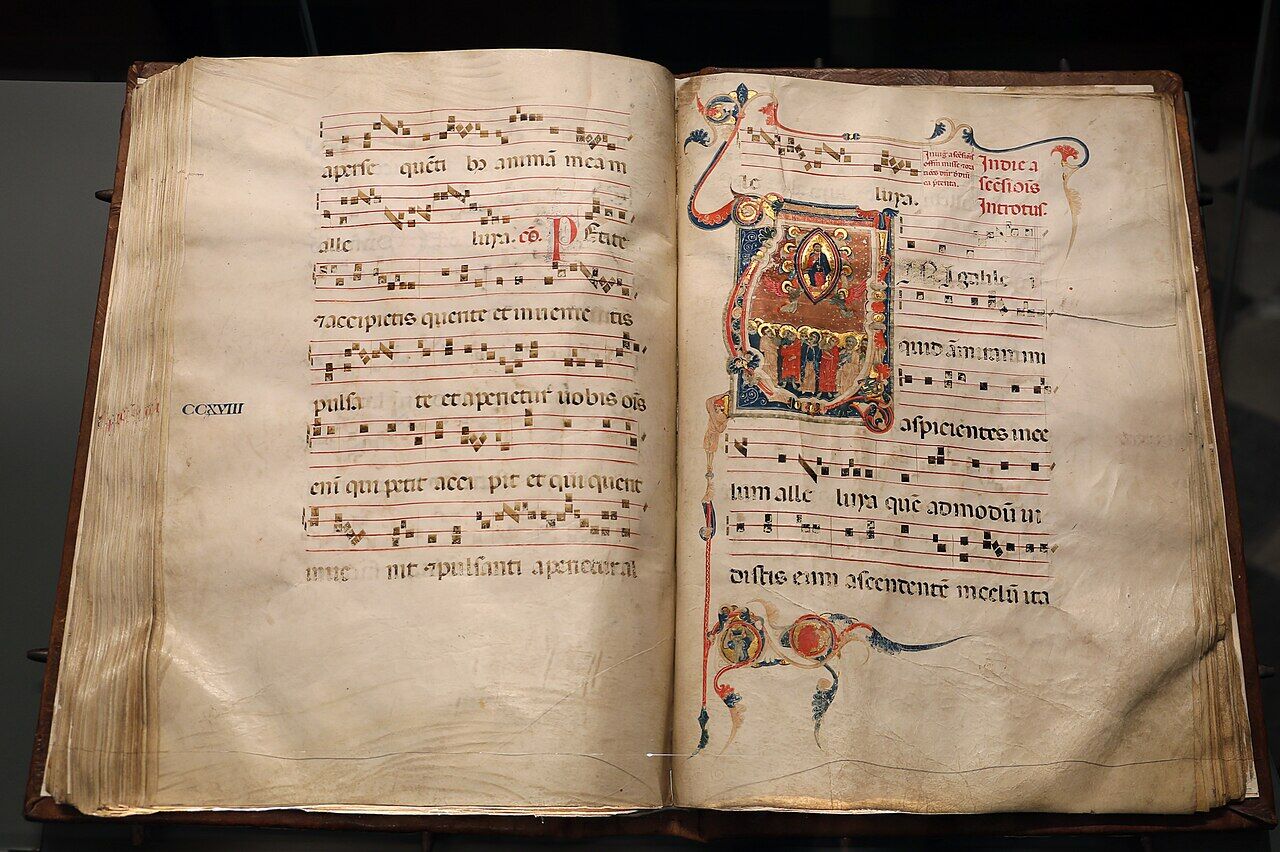 aperte querẽti bo animã meam
alle luya. cõ. Petite
⁊accipietis querite et inuenietis
CCXVIII
pulsa te et aperietur uobis oĩs
eni qui petit acci pit et qui querit
inue nit ⁊pulsanti aperietur al
le luya.
In die a
scẽsiõis
Introitus.
Viri galilei
quid ãmiramini
aspicientes in ce
lum alle luya quẽ admodũ ui
distis eum ascendentẽ in celũ ita